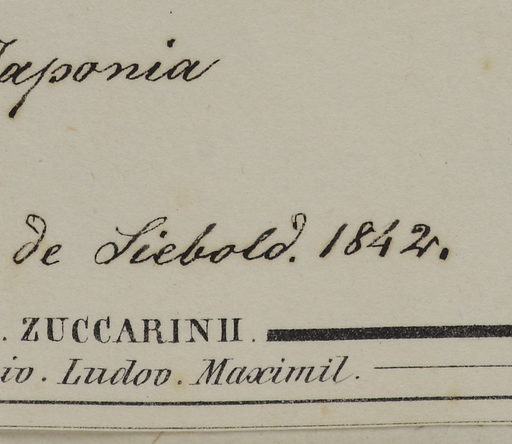 Japonia
de Siebold. 1842.
. ZUCCARINII.
io. Ludov. Maximil.